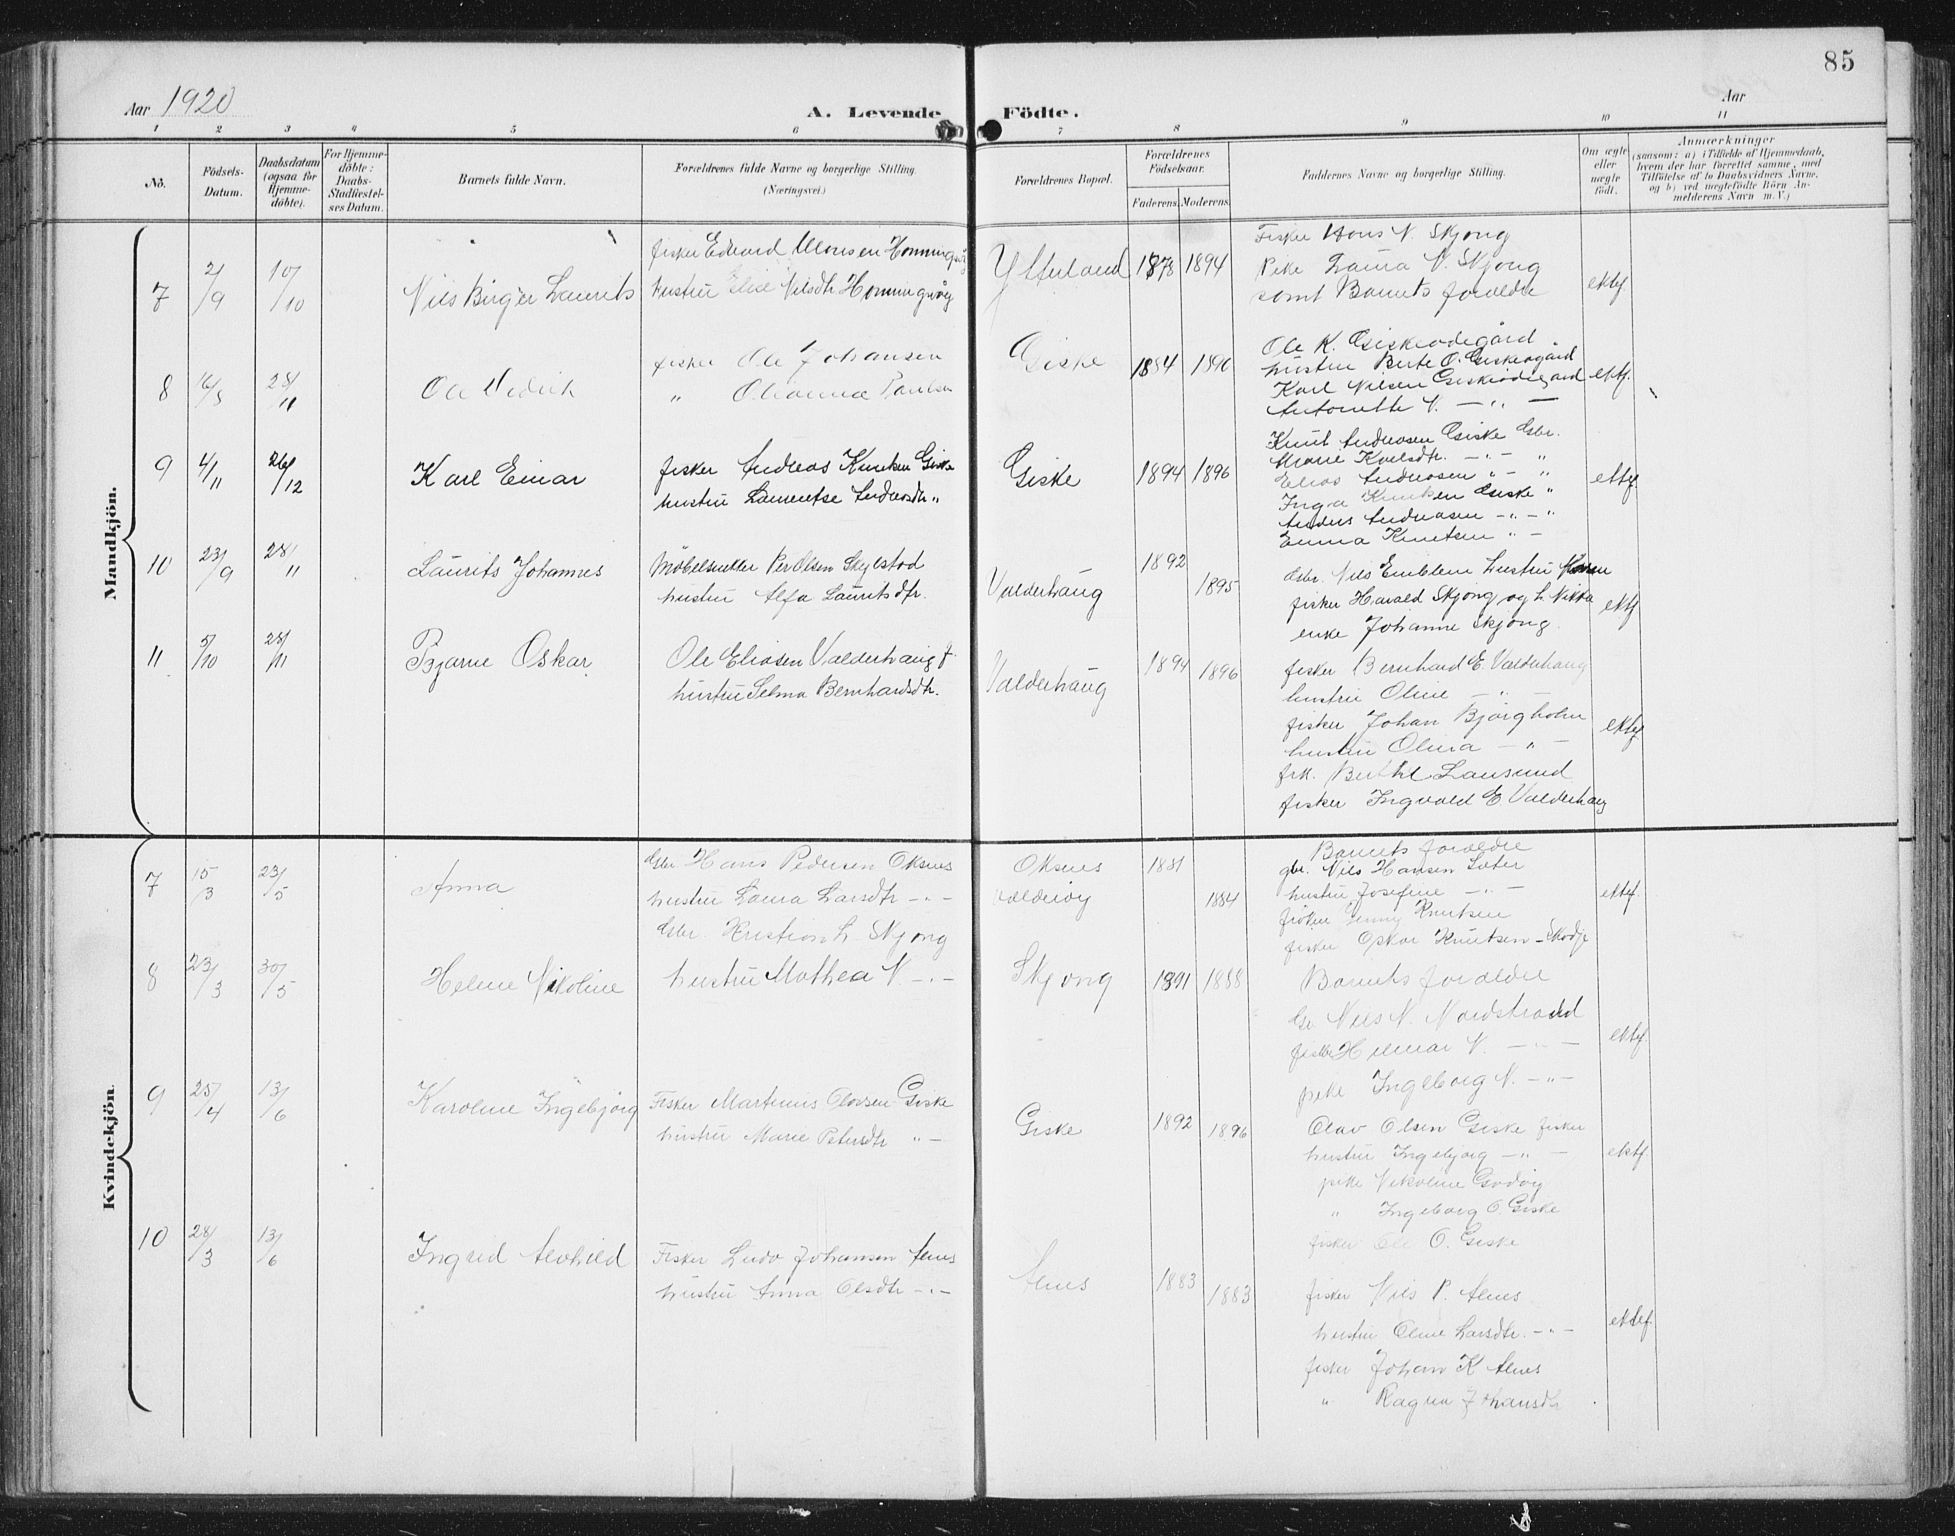 85
Aar 1920
A. Levende Födte.
Aar
1 2 3 4 5 6 7 8 9 10 11
No.
Födsels-
Datum.
Daabsdatum
(ogsaa for
Hjemme-
döbte).
For Hjemme-
döbte:
Daabs-
Stadfæstel-
ses Datum.
Barnets fulde Navn.
Forældrenes fulde Navne og borgerlige Stilling.
(Næringsvei.)
Forældrenes Bopæl.
Forældrenes
Födselsaar.
Faderens. Moderens.
Faddernes Navne og borgerlige Stilling.
Om ægte
eller
uægte
födt.
Anmærkninger
(saasom: a) i Tilfælde af Hjemmedaab,
hvem der har forrettet samme, med
Tilföielse af to Daabsvidners Navne,
og b) ved uegtefödte Börn An-
melderens Navn m. V.)
Mandkjön.
7 2/9 10/10 Nils Birger Laurits
fisker Edvard Monsen Honningsvåg
hustru Elise Nilsdtr Honningsvåg
Ytterland 1878 1894
Fisker Hans N. Skjong
Pike Laura N. Skjong
samt Barnets foreldre
ektef.
8 16/5 28/11 Ole Vedvik
fisker Ole Johansen
" Olianna Paulsen
Giske 1884 1890
Ole K. Giskeødegård
hustru Berte O. Giskeøgård
Karl Nilsen Giskeødegård
Antonette N. — " —
ektf.
9 4/11 26/12 Karl Einar
fisker Andreas Knutsen Giske
hustru Laurentse Andreasdtr "
Giske 1894 1896
Knut Andreasen Giske Gbr.
Marie Karlsdtr. — " — "
Elias Andreasen " — "
Inga Knutsen Giske "
Anders Andreasen — " — "
Emma Knutsen " —
ektef
10 23/9 28/11 Laurits Johannes
Möbelsnekker Per Olsen Skylstad
hustru Alfa Lauritsdtr.
Valderhaug 1892 1895
Gbr. Nils Emblem hustru
fisker Harald Skjong og h.
enke Johanne Skjong.
ektf
11 5/10 28/11 Bjarne Oskar
Ole Eliasen Valderhaug f.
hustru Selma Bernhardsdtr.
Valderhaug 1894 1896
fisker Bernhard E. Valderhaug
hustru Oline — " —
fisker Johan Bjørgholm
hustru Olina — " —
frk. Berthe Lausund
fisker Ingvald E Valderhaug
ektef
Kvindekjön.
7 15/3 23/5 Anna
Gbr Hans Pedersen Oksnes
hustru Laura Larsdtr — " —
Oksnes
Valderøy 1881 1884
Barnets foreldre
gbr. Nils Hansen Sæter
hustru Josefine — " —
frøken Jenny Knutsen
fisker Oskar Knutsen — Skodje
ektef.
8 23/3 30/5 Helene Nikoline
Gbr. Kristian L. Skjong
hustru Mathea N. — " —
Skjong 1891 1888
Barnets foreldre
Gbr Nils N. Nordstrand
fisker Hilmar N. — " —
pike Ingeborg N. — " —
ektef.
9 25/4 13/6 Karoline Ingebjørg
Fisker Martinus Olavsen Giske
hustru Marie Petersdtr " —
Giske 1892 1896
Olav Olsen Giske fisker
hustru Ingebjørg — " —
pike Nikoline Godøy
" Ingeborg O. Giske
fisker Ole O. Giske
ektf
10 28/3 13/6 Ingrid Alvhild
Fisker Ludv Johansen Alnes
hustru Anna Olsdtr — " —
Alnes 1883 1883
fisker Nils P. Alnes
hustru Oline Larsdtr. — " —
fisker Johan K Alnes
" Ragna Johansdtr
ektef.